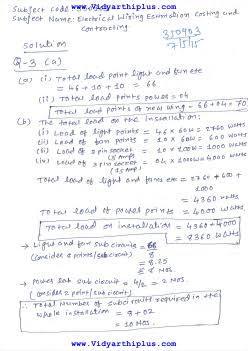 www.Vidyarthiplus.com
Subject code
Subject Name: Electrical Wiring Estimation Costing and
Contracting
Solution
Q-3 (a)
(a) (i) Total load point light and fan etc
= 46 + 10 + 10 = 66
(ii) Total power points = 04
Total load points of new wing = 66 + 04 = 70
(b) The total load on the installation:
(i) Load of light points = 46 x 60W = 2760 Watts
(ii) Load of fan points = 10 x 60W = 600 Watts
(iii) Load of 2 pin socket = 10 x 100W = 1000 Watts
(5 Amp)
(iv) Load of 3 pin socket = 04 x 1000W 4000 Watts
(15 Amp)
Total load of light and fans etc = 2760 + 600 +
1000
= 4360 Watts
Total load of power points = 4000 Watts
Total load on installation = 4360 + 4000
= 8360 Watts
→ Light and fan sub circuits = 66
(Consider 8 points/subcircuit) 8
= 8.25
= 8 Nos
→ Power sub circuit = 4/2 = 2 Nos.
(consider 2 point/sub circuit)
∴ Total Number of sub circuit required in the
whole installation = 8 + 02
= 10 Nos.
www.Vidyarthiplus.com